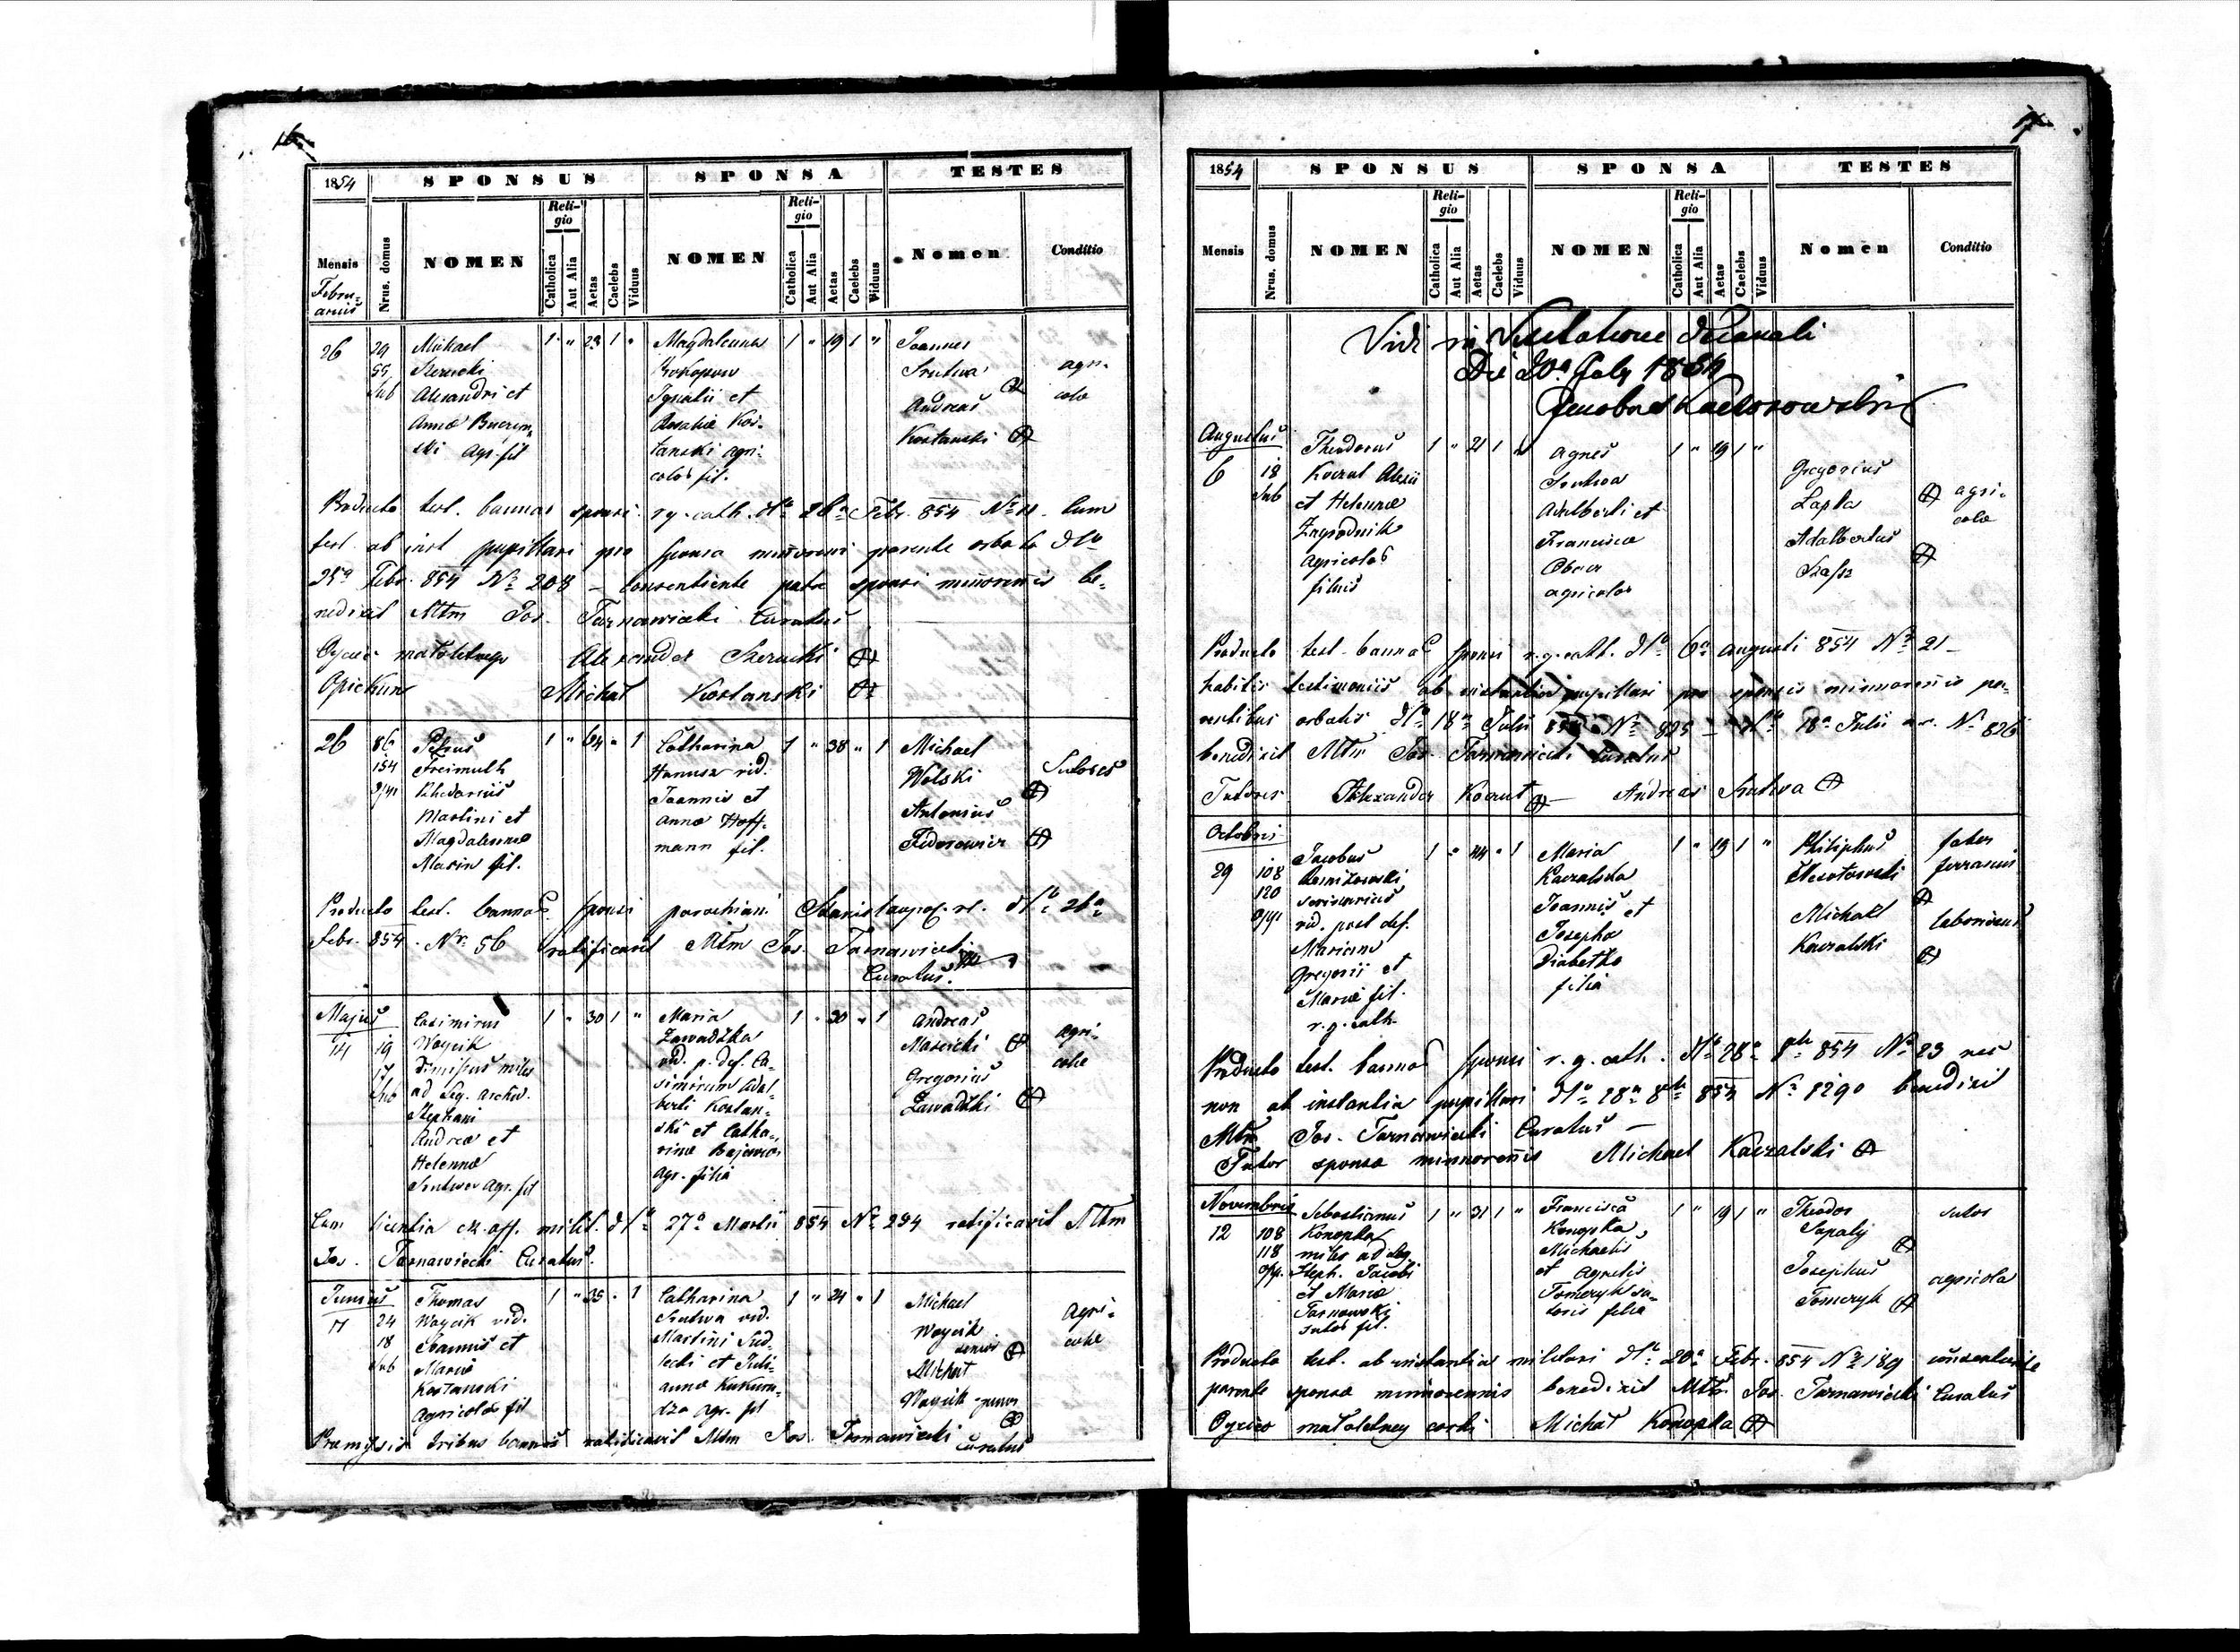 16.
1854
SPONSUS
SPONSA
TESTES
Mensis
Februarius
Nrus. domus
NOMEN
Religio
Catholica
Aut Alia
Aetas
Caelebs
Viduus
NOMEN
Religio
Catholica
Aut Alia
Aetas
Caelebs
Viduus
Nomen
Conditio
26
29
55
Sub
Michael
Alexandri et
Anna
ski Agr. fil
1 " 23 1 "
Magdalenna
Prokopow
Ignatii et
Rosaliae Kos-
tanski agri-
colar fil.
1 " 19 1 "
Joannes
Srutwa
Andreas
Kostanski
agri-
colae
Producto test. bannor sponsi r.g. cath. dto 26a Febr. 854 No 11. Cum
test. ab inst pupillari pro sponsa minorenni parente orbata dto
25a Febr. 854 No 208 – consentiente patre sponsi minorennis be-
nedixit Mtm Jos. Tarnawiecki Curatus
Oyciec małoletnego Alexander Szerucki
Opiekun Michał Kostanski
26
86
154
Petrus
Freimuth
Rhedarius
Martini et
Magdalennae
Masin fil.
1 " 64 " 1
Catharina
Hanusz vid.
Joannis et
Anna Hoff-
mann fil.
1 " 38 " 1
Michael
Wolski
Antonius
Fedorowicz
Sutores
Producto test. bannor sponsi parochiani Stanislaopol. r.l. dto 26a
Febr. 854. Nr. 56 ratificavit Mtm Jos. Tarnawiecki
Curatus.
Majus
14
19
17
Sub
Casimirus
Woycik
Dimissus miles
ad Leg. Archid.
Stephani
Andreae et
Helennae
Srutwa Agr. fil
1 " 30 1 "
Maria
Zawadzka
vid. p. def. Ca-
simirum Adal-
berti Kostan-
ski et Catha-
rinae
Agr. filia
1 " 30 " 1
Andreas
Masecki
Gregorius
Zawadzki
agri-
colae
Cum licentia milit. dto 27a Martii 854 No 294 ratificavit Mtm
Jos. Tarnawiecki Curatus.
Junius
11
24
18
Sub
Thomas
Woycik vid.
Joannis et
Mariae
Kostanski
Agricolar fil
1 " 35 " 1
Catharina
Srutwa vid.
Martini Sud-
lecki et Juli-
annae Kukuru-
dza Agr. fil
1 " 24 " 1
Michael
Woycik
senior
Michał
Woycik junior
Agri-
colae
Praemissis tribus bannis ratificavit Mtm Jos. Tarnawiecki
Curatus
17.
1854
SPONSUS
SPONSA
TESTES
Mensis
Nrus. domus
NOMEN
Religio
Catholica
Aut Alia
Aetas
Caelebs
Viduus
NOMEN
Religio
Catholica
Aut Alia
Aetas
Caelebs
Viduus
Nomen
Conditio
Vidi in Visitatione decanali
Die 20a July 1854
Jacobus
Augustus
6
18
Sub
Theodorus
Koczut Alexii
et Helennae
Zagrodnik
agricolar
filius
1 " 21 1 "
Agnes
Srutwa
Adalberti et
Francisca
Oberc
agricolar
1 " 19 1 "
Gregorius
Lapka
Adalbertus
agri-
colae
Producto test. bannor sponsi r.g. cath. dto 6a augusti 854 No 21 –
habitis testimoniis ab instantia pupillari pro sponsis minorennis pa-
rentibus orbatis dto 18a Julii 854 No 825 – dto 18a Julii a.c. No 826
benedixit Mtm Jos. Tarnawiecki Curatus
Tutores Alexander Koczut – Andreas Srutwa
Octobris
29
108
120
Jacobus
vid. post def.
Mariam
Gregorii et
Mariae fil.
r.g. cath.
1 " 44 " 1
Maria
Kaczalska
Joannis et
Josepha
Diabetko
filia
1 " 19 1 "
Philiphus
Michael
Kaczalski
faber
ferrarius
Producto test. bannor sponsi r.g. cath. dto 28a 8br 854 No 23 nec
non ab instantia pupillari dto 28a 8br 854 No 1290 benedixit
Mtm Jos. Tarnawiecki Curatus –
Tutor sponsae minnorennis Michael Kaczalski
Novembris
12
108
118
Sebastianus
Konopka
miles ad Leg.
Steph. Jacobi
et Mariae
Tarnowski
sutor fil.
1 " 31 1 "
Francisca
Konopka
Michaelis
et Agnetis
Tomczyk su-
toris filia
1 " 19 1 "
Theodor
Sapaly
Josephus
Tomczyk
sutor
agricola
Producto test. ab instantia militari dto 20a Febr. 854 No 189 consentiente
parente sponsae minnorennis benedixit Mtm Jos. Tarnawiecki Curatus
Oyciec małoletney corki Michał Konopka